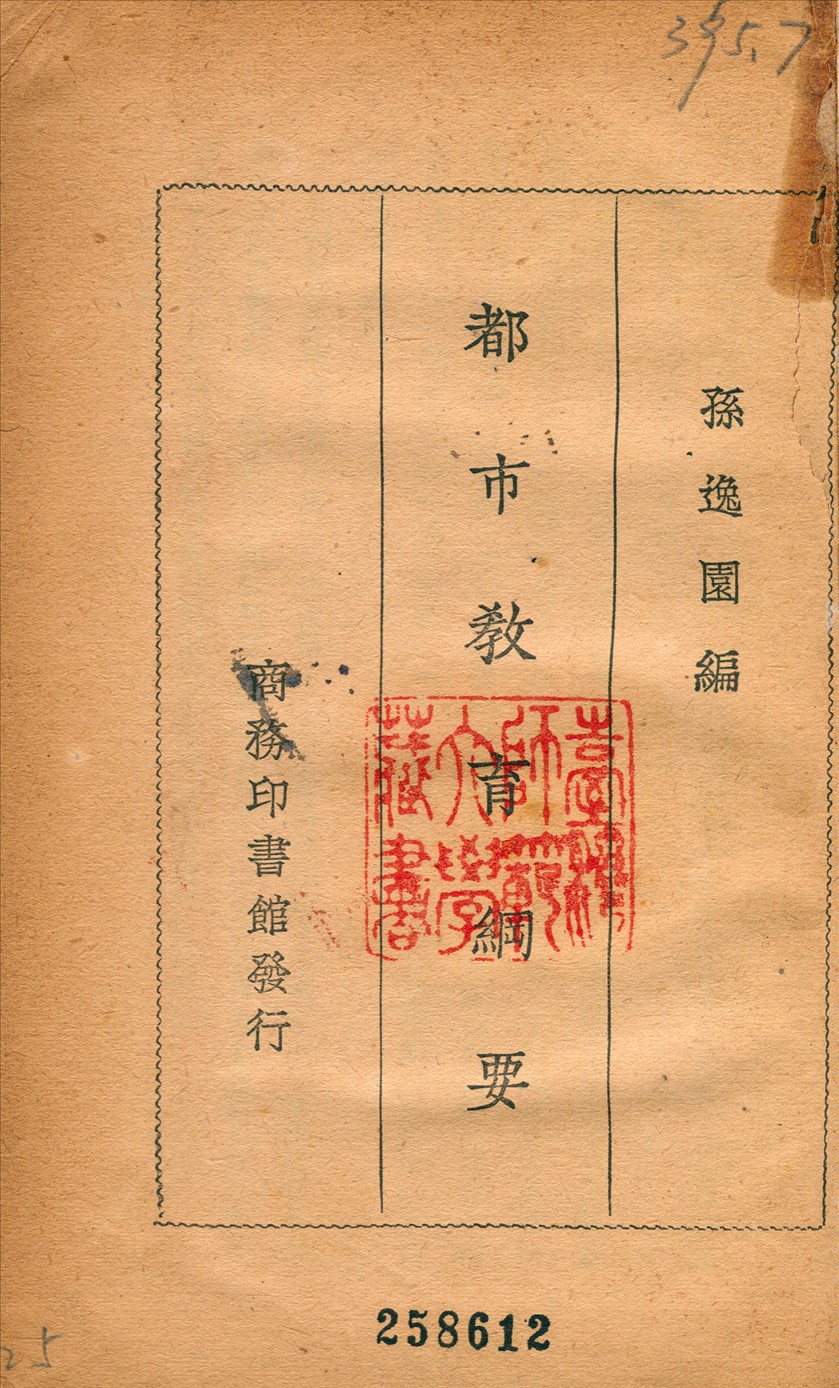 孫逸園編
都市教育綱要
商務印書館發行
臺灣
師範
大學
藏書
258612